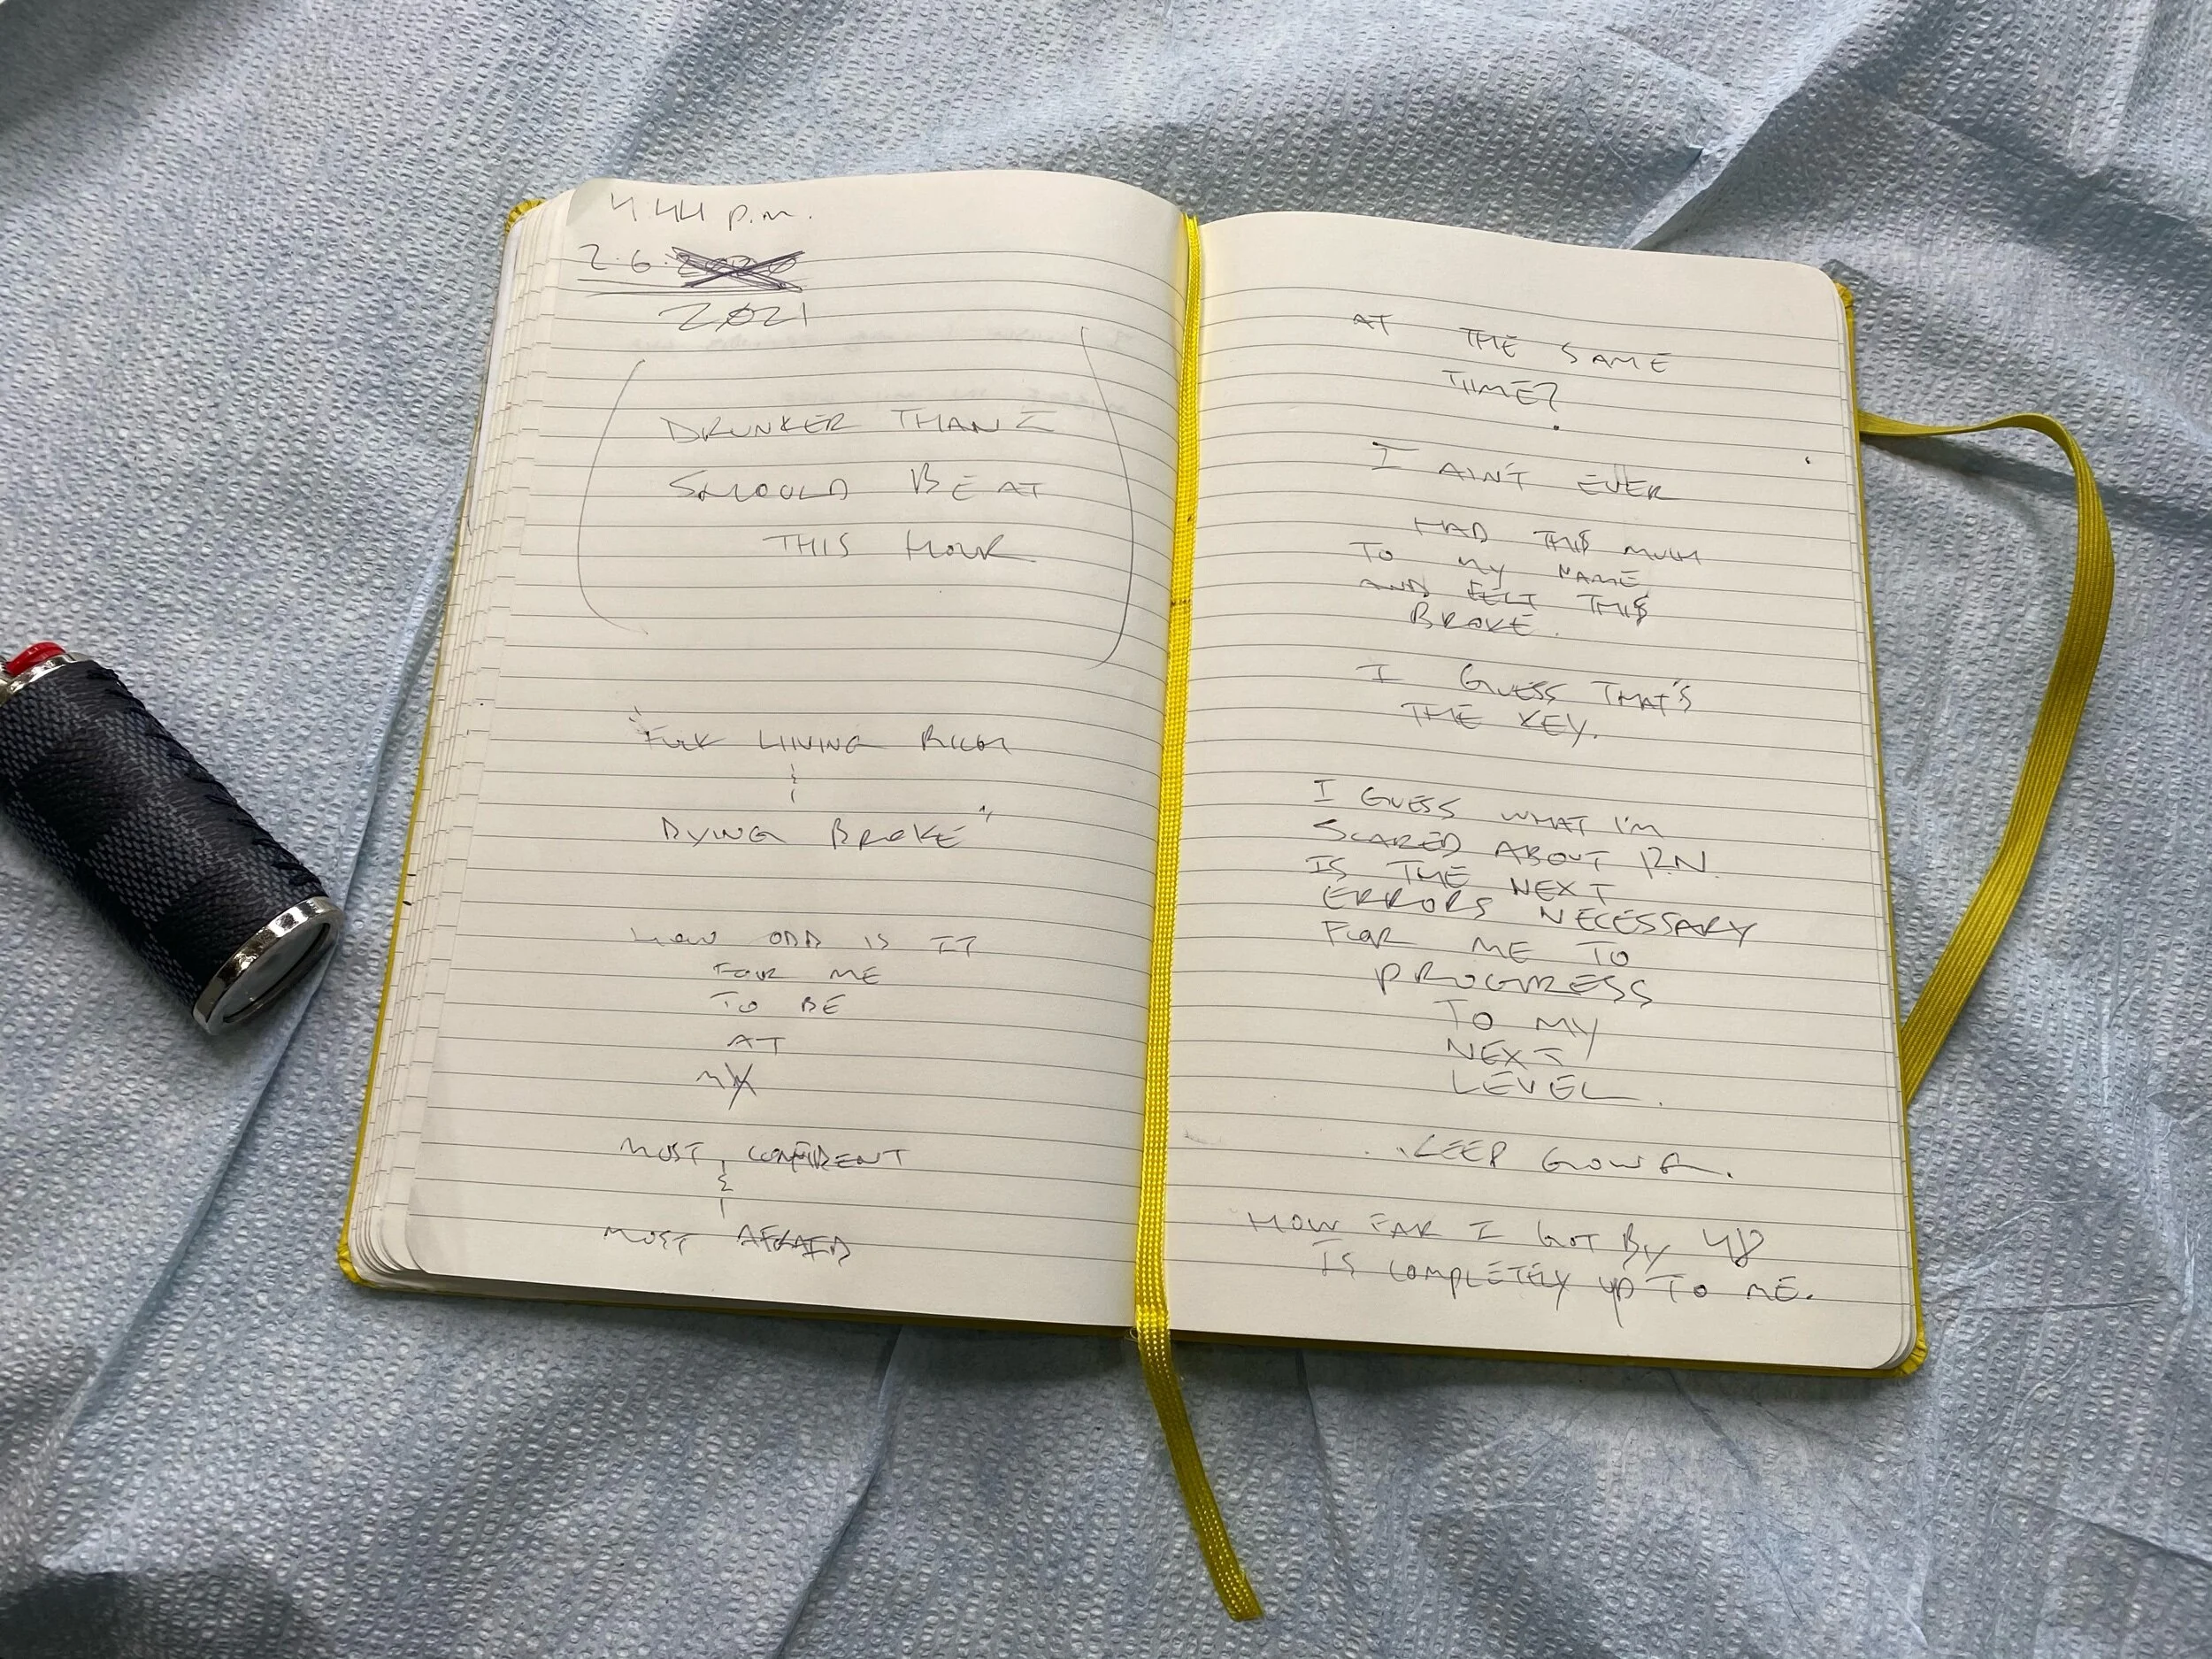 4:44 p.m.
2.6.
2021
DRUNKER THAN I
SHOULD BE AT
THIS HOUR
"FUCK LIVING RICH
&
DYING BROKE"
HOW ODD IS IT
FOR ME
TO BE
AT
MY
MOST CONFIDENT
&
MOST AFRAID
AT THE SAME
TIME?
I AIN'T EVER
HAD THI$ MUCH
TO MY NAME
AND FELT THI$
BROKE.
I GUESS THAT'S
THE KEY.
I GUESS WHAT I'M
SCARED ABOUT RN
IS THE NEXT
ERRORS NECESSARY
FOR ME TO
PROGRESS
TO MY
NEXT
LEVEL.
HOW FAR I GOT BY 48
IS COMPLETELY UP TO ME.